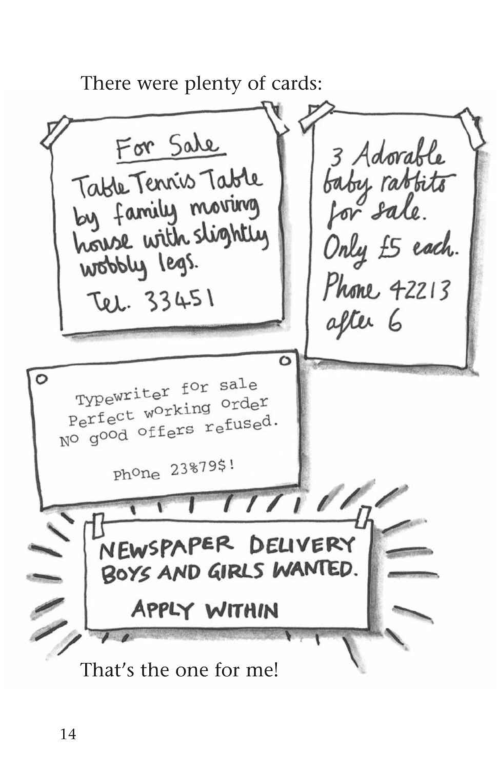 There were plenty of cards:
For Sale
Table Tennis Table
by family moving
house with slightly
wobbly legs.
Tel. 33451
3 Adorable
baby rabbits
for sale.
Only £5 each.
Phone 42213
after 6
Typewriter for sale
Perfect working order
No good offers refused.
Phone 23%79$!
NEWSPAPER DELIVERY
BOYS AND GIRLS WANTED.
APPLY WITHIN
That's the one for me!
14